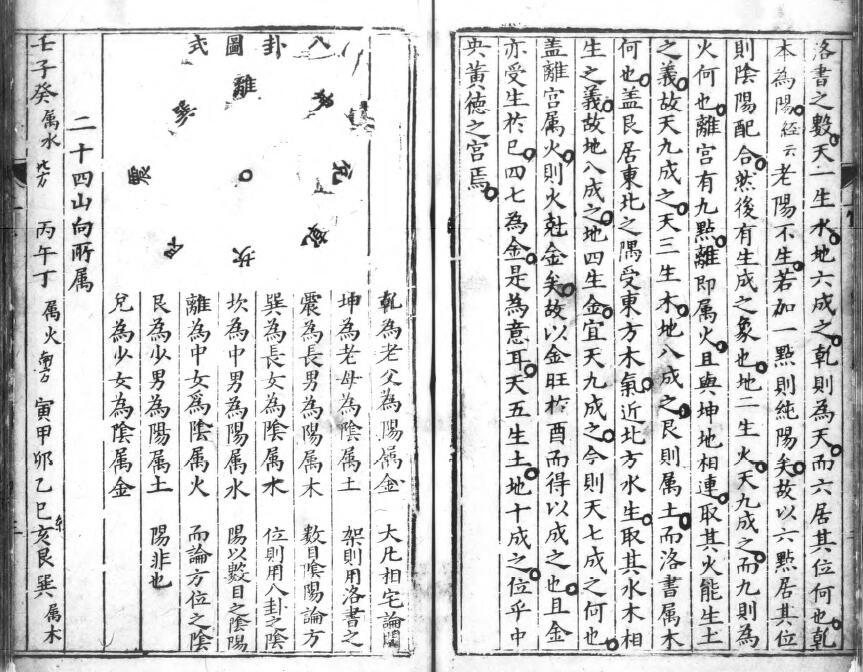 洛書之數天一生水地六成之乾則為天而六居其位何也乾
本為陽經云老陽不生若加一點則純陽矣故以六點居其位
則陰陽配合然後有生成之象也地二生火天九成之而九則為
火何也離宮有九點離即属火且與坤地相連取其火能生土
之義故天九成之天三生木地八成之艮則属土而洛書属木
何也盖艮居東北之隅受東方木氣近北方水生取其水木相
生之義故地八成之地四生金宜天九成之今則天七成之何也
盖離宮属火則火尅金矣故以金旺於酉而得以成之也且金
亦受生於巳四七為金是為意耳天五生土地十成之位乎中
央黃德之宮焉
八卦圖式
離
坤
兌
乾
坎
艮
震
巽
乾為老父為陽属金
坤為老母為陰属土
震為長男為陽属木
巽為長女為陰属木
坎為中男為陽属水
離為中女爲陰属火
艮為少男為陽属土
兌為少女為陰属金
大凡相宅論間
架則用洛書之
數目陰陽論方
位則用八卦之陰
陽以數目之陰陽
而論方位之陰
陽非也
二十四山向所属
壬子癸属水北方 丙午丁属火南方 寅甲卯乙巳亥艮巽属木